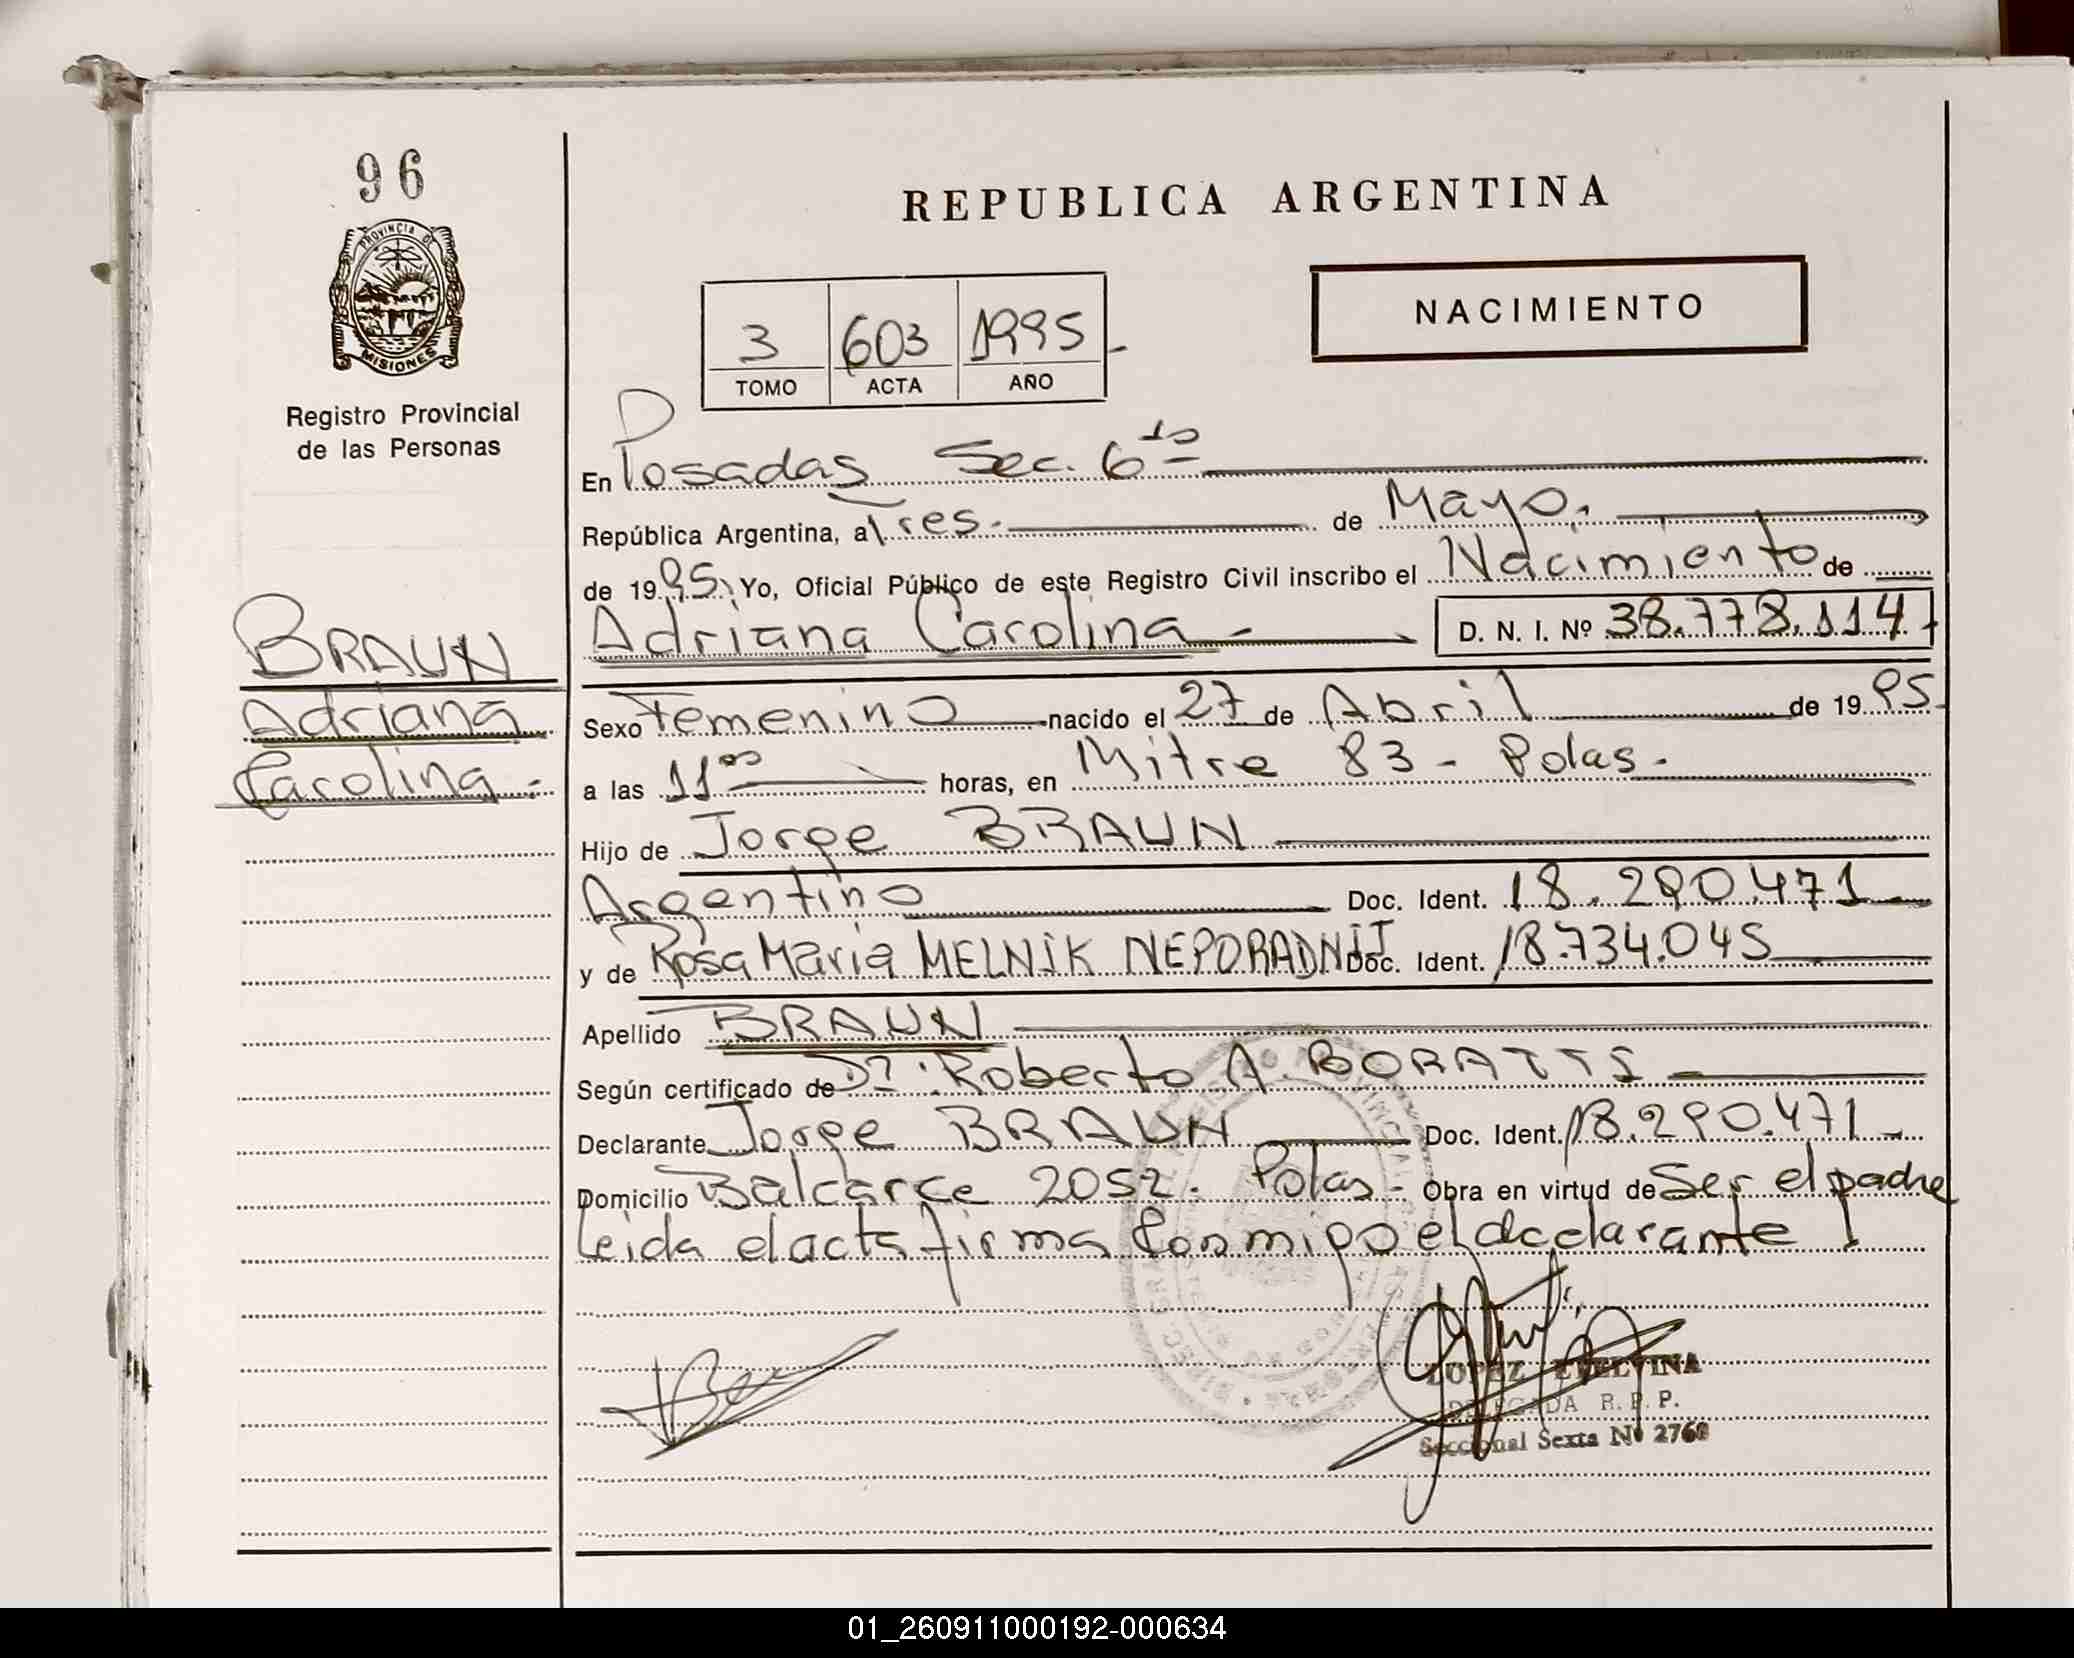 96
PROVINCIA DE
MISIONES
Registro Provincial
de las Personas
REPUBLICA ARGENTINA
NACIMIENTO
3 603 1995
TOMO ACTA AÑO
En Posadas Sec. 6ta
República Argentina, a Tres. de Mayo.
de 1995. Yo, Oficial Público de este Registro Civil inscribo el Nacimiento de
Adriana Carolina D. N. I. Nº 38.778.114
BRAUN
Adriana
Carolina
Sexo Femenino nacido el 27 de Abril de 1995
a las 11 00 horas, en Mitre 83 - Pdas.
Hijo de Jorge BRAUN
Argentino Doc. Ident. 18.290.471
y de Rosa Maria MELNIK NEPORADNIJ Doc. Ident. 18.734.045
Apellido BRAUN
Según certificado de Dr. Roberto A. BORATTI
Declarante Jorge BRAUN Doc. Ident. 18.290.471
Domicilio Balcarce 2052. Pdas. Obra en virtud de Ser el padre
Leida el acta firma Conmigo el declarante
LOPEZ ETELVINA
DELEGADA R. P. P.
Seccional Sexta Nº
01_260911000192-000634